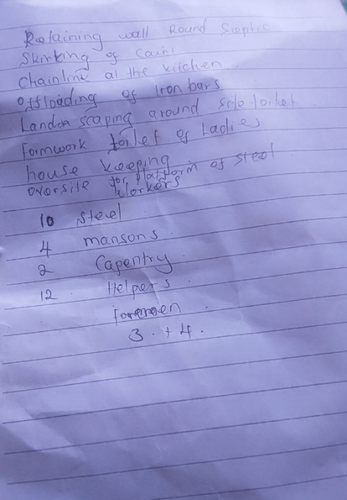 Retaining wall Round Simple
Skirking of Cains
Chainlink at the kitchen
Offloading of Iron bars
Landm scaping around Solo toilet
Formwork toilet of Ladies
house keeping
oversite for platform of steel
Workers
10 Steel
4 mansons
2 Capentry
12 Helpers
Foremen
3 + 4.